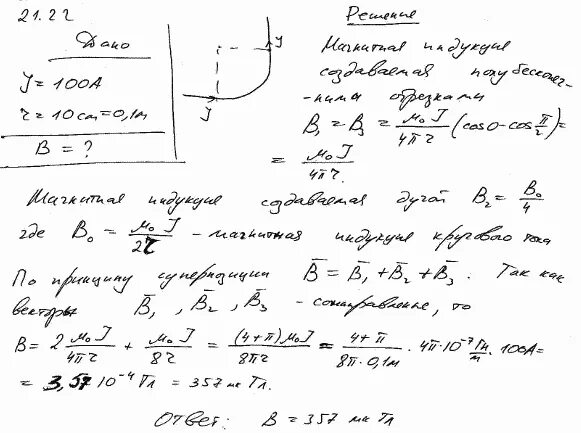 21.22
Решение
Дано
J = 100А
r = 10 cm = 0,1м
B = ?
J
J
Магнитная индукция
создаваемая полубесконеч-
-ными отрезками
B₁ = B₃ = μ₀J/4πr (cos0 - cos π/2) =
= μ₀J/4πr.
Магнитная индукция создаваемая дугой B₂ = B₀/4
где B₀ = μ₀J/2r - магнитная индукция кругового тока
По принципу суперпозиции B̄ = B̄₁ + B̄₂ + B̄₃. Так как
векторы B̄₁, B̄₂, B̄₃ - сонаправленые, то
B = 2 μ₀J/4πr + μ₀J/8r = (4+π)μ₀J/8πr = 4+π/8π·0,1м · 4π·10⁻⁷ Гн/м · 100А =
= 3,57·10⁻⁴ Тл = 357 мк Тл.
Ответ: B = 357 мк Тл